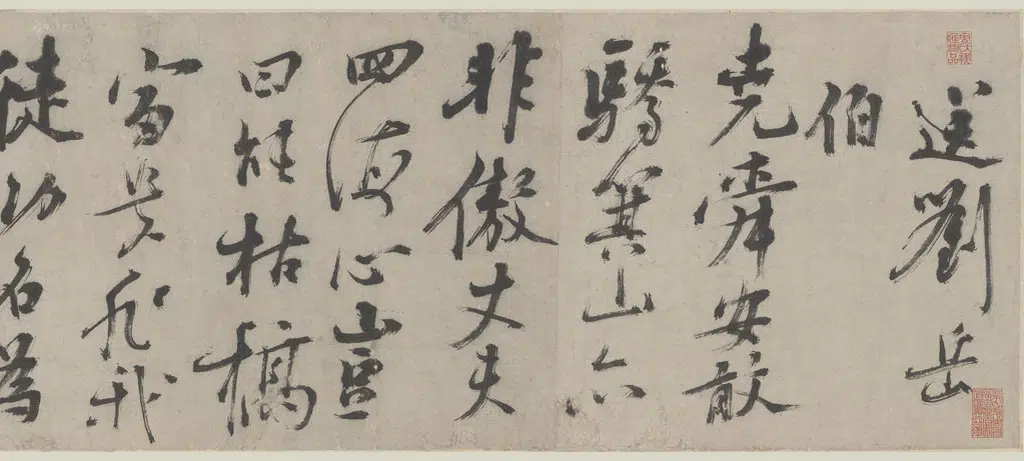 送劉岳
伯
堯舜安敢
驕箕山亦
非傲丈夫
四海心豈
曰甘枯槁
富貴非我
徒功名為